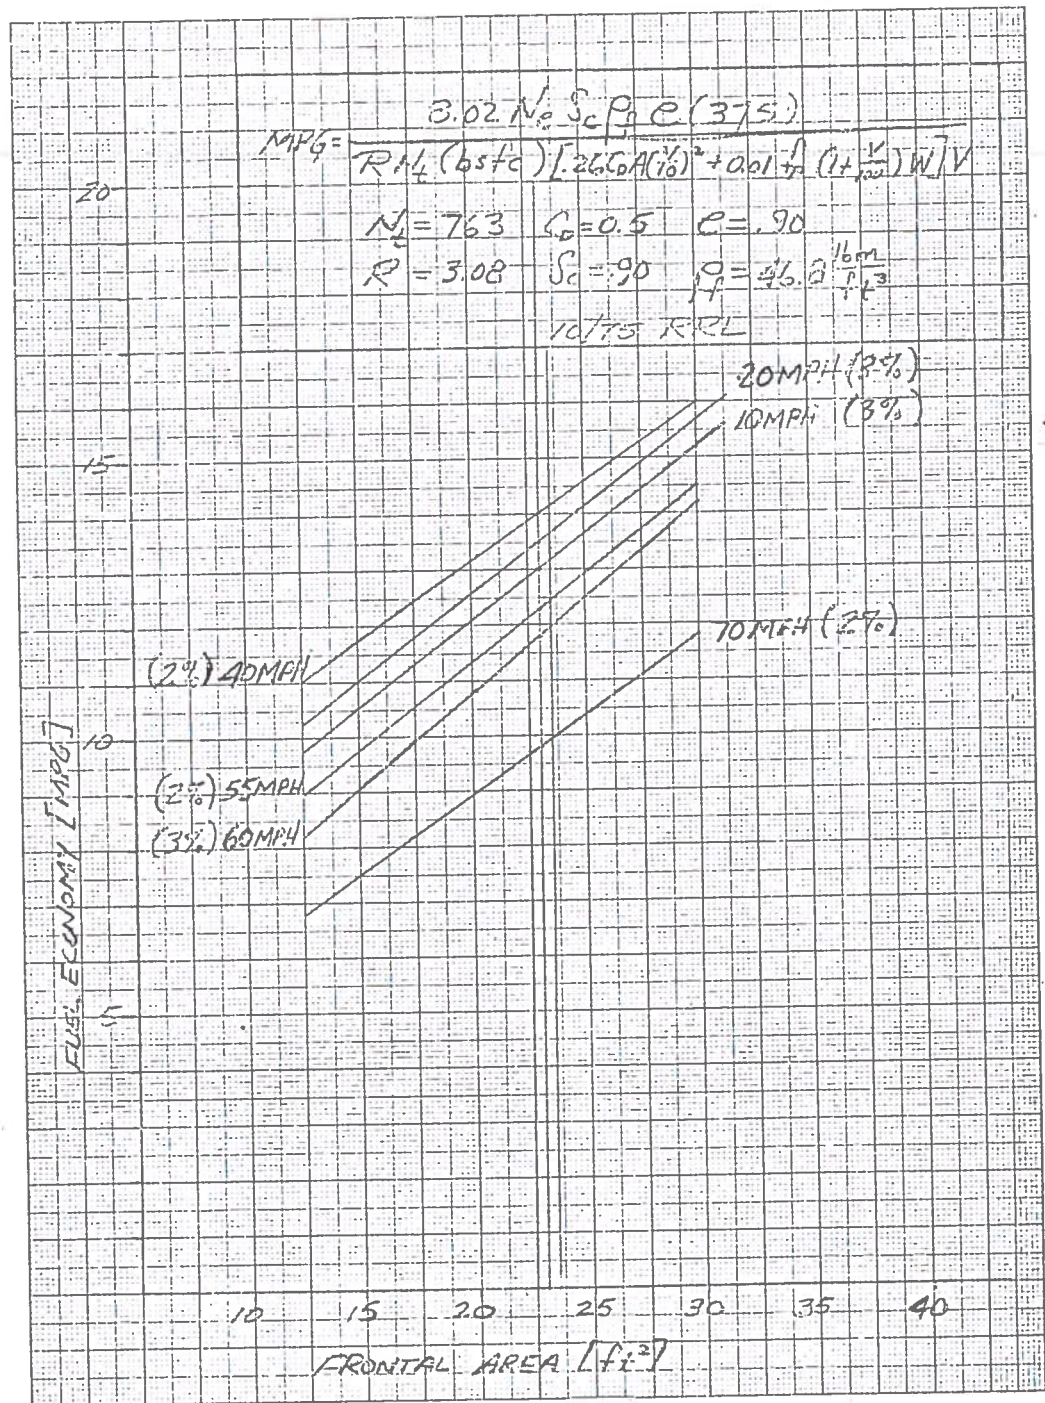 MPG = 3.02 Ne Sc ρf e (375)
R Ht (bsfc) [.26 CD A (V/10)² + 0.01 f (1 + V/100) W] V
20
Nt = 763 CD = 0.5 e = .90
R = 3.08 Sc = .90 ρf = 46.2 lbm/ft³
10/75 RRL
20 MPH (3%)
10 MPH (3%)
15
70 MPH (2%)
(2%) 40 MPH
10
(2%) 55 MPH
(3%) 60 MPH
FUEL ECONOMY [MPG]
5
10 15 20 25 30 35 40
FRONTAL AREA [ft²]